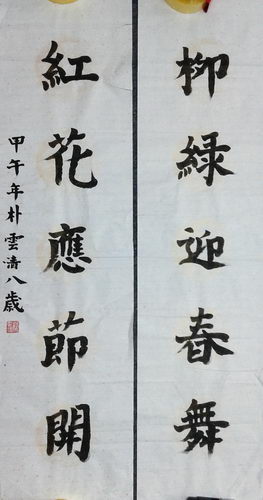 柳緑迎春舞
紅花應節開
甲午年朴雲清八歲